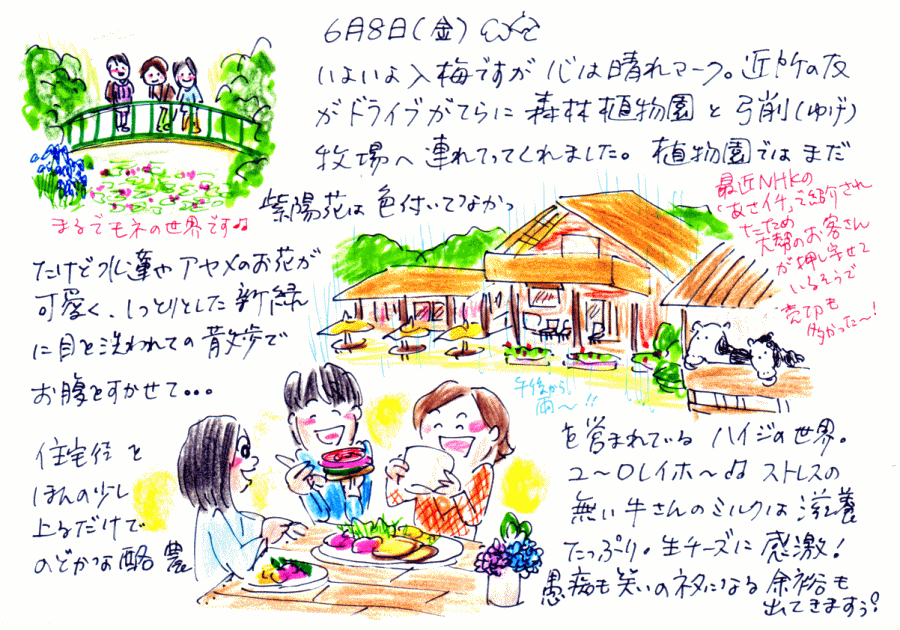 6月8日(金)
いよいよ入梅ですが 心は晴れマーク。近所の友
がドライブがてらに 森林植物園と弓削(ゆげ)
牧場へ連れてってくれました。植物園ではまだ
紫陽花は色付いてなかっ
たけど水蓮やアヤメのお花が
可愛く、しっとりとした新緑
に目を洗われての散歩で
お腹をすかせて・・・
まるでモネの世界です♫
最近NHKの
「あさイチ」で紹介され
たため
大勢のお客さん
が押し寄せて
いるそうで
売切も
多かった〜!
午後から
雨〜!!
住宅街を
ほんの少し
上るだけで
のどかな酪農
を営まれている ハイジの世界。
ユ〜ロレイホ〜♫ ストレスの
無い牛さんのミルクは滋養
たっぷり・生チーズに感激!
愚痴も笑いのネタになる余裕も
出てきますぅ!